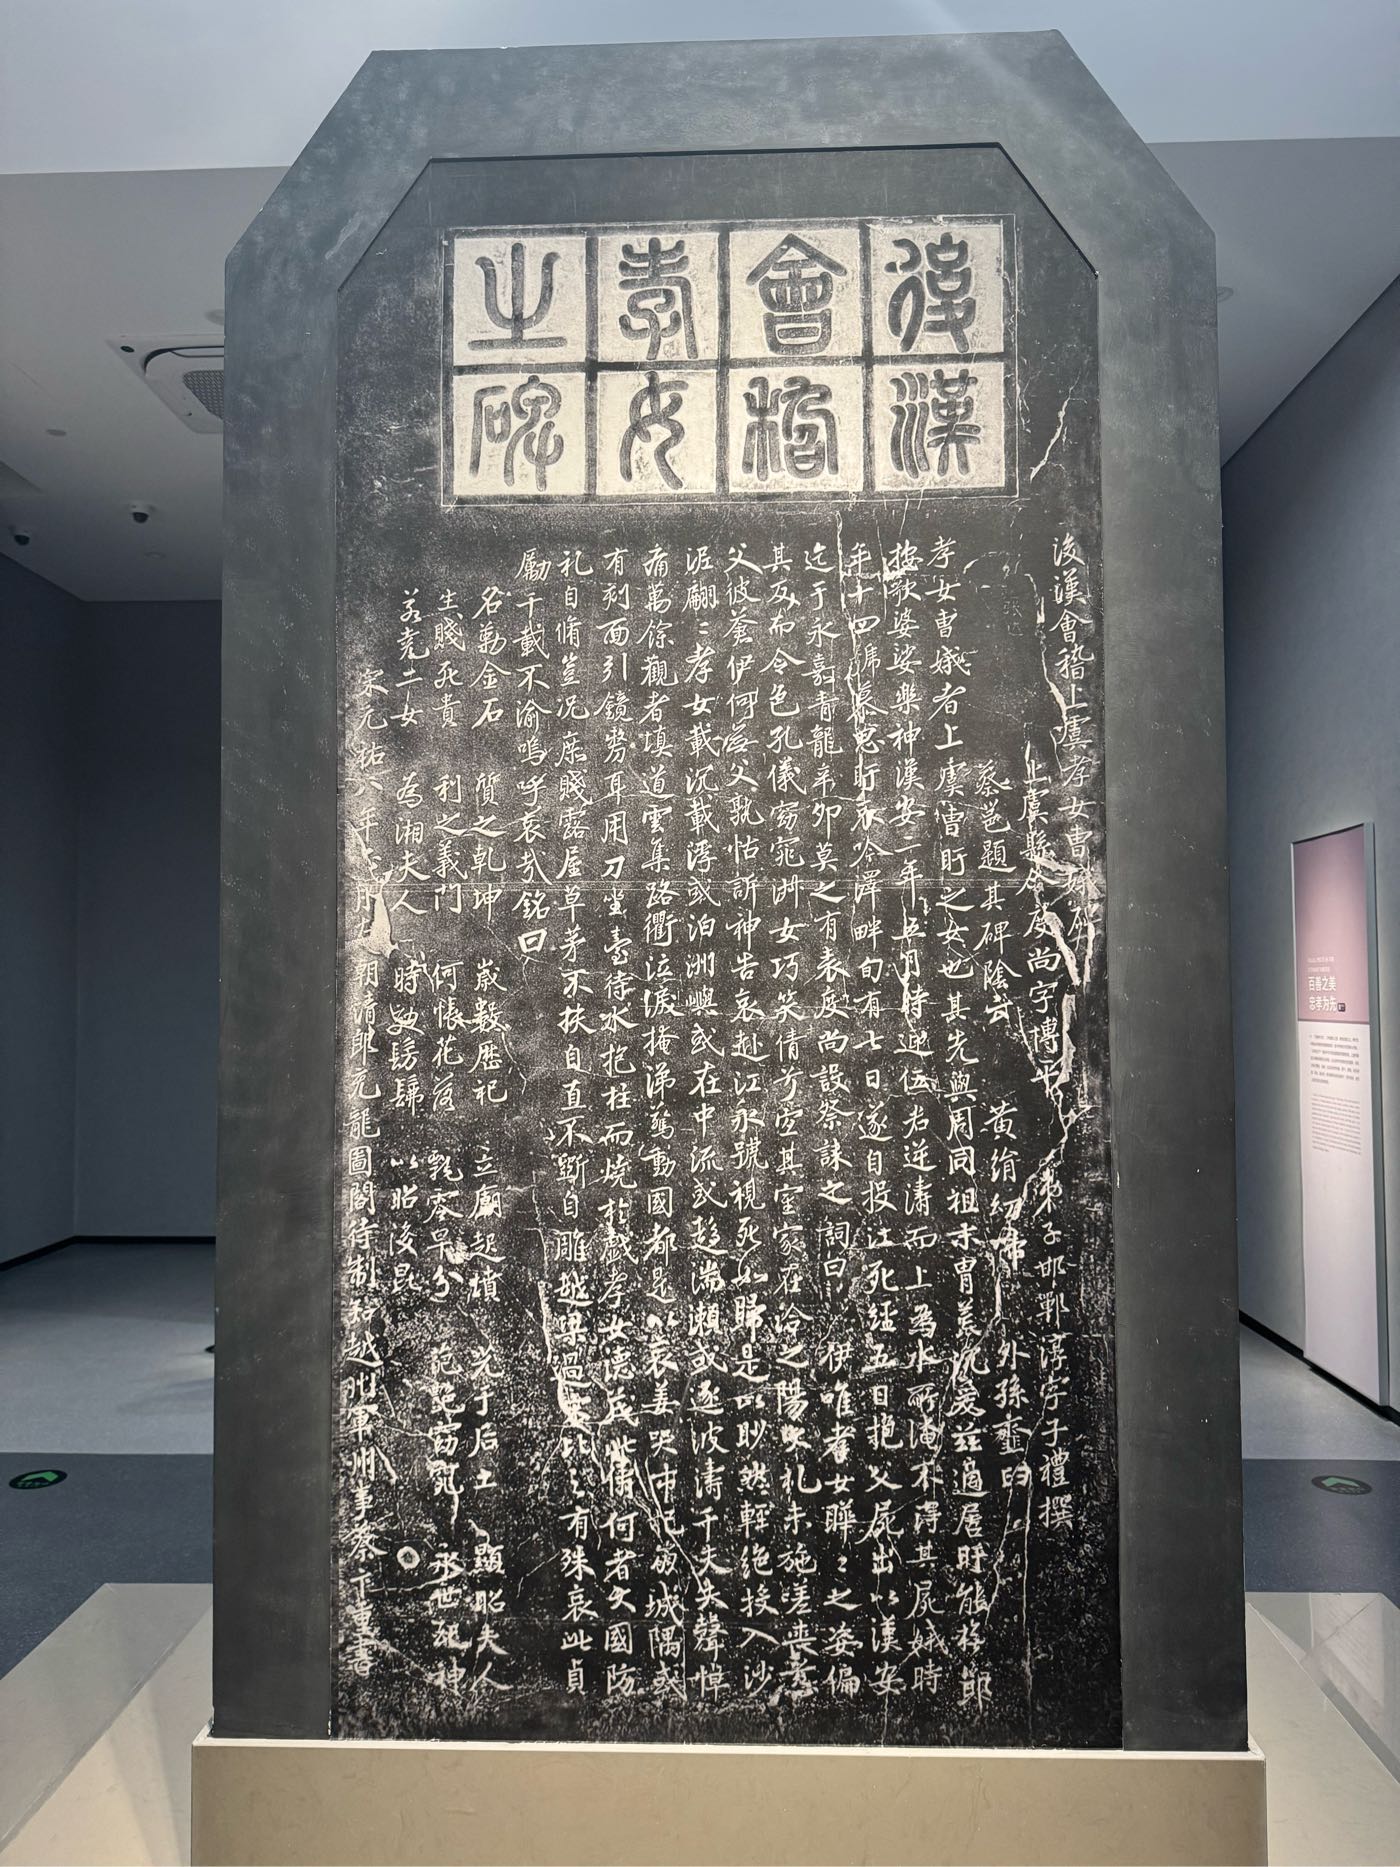 後漢會稽孝女之碑
後漢會稽上虞孝女曹娥碑
上虞縣令度尚字博平 弟子邯鄲淳字子禮撰
蔡邕題其碑陰云 黃絹幼婦 外孫齏臼
孝女曹娥者上虞曹盱之女也其先與周同祖末胄荒沉爰茲適居盱能撫節
按歌婆娑樂神漢安二年五月時迎伍君逆濤而上為水所淹不得其屍娥時
年十四號慕思盱哀吟澤畔旬有七日遂自投江死經五日抱父屍出以漢安
迄于永嘉青龍辛卯莫之有表度尚設祭誄之詞曰 伊唯孝女曄〻之姿偏
其反而令色孔儀窈窕淑女巧笑倩兮宜其室家在洽之陽大礼未施嗟喪慈
父彼蒼伊何無父孰怙訴神告哀赴江永號視死如歸是以眇然輕絕投入沙
泥翩〻孝女載沉載浮或泊洲嶼或在中流或趍湍瀨或逐波濤千夫失聲悼
痛萬餘觀者填道雲集路衢泣淚掩涕驚動國都是以哀姜哭市杞崩城隅或
有刻面引鏡剺耳用刀坐臺待水抱柱而燒於戲孝女德茂此儔何者大國防
礼自脩豈況庶賤露屋草茅不扶自直不斲自雕越梁過宋比之有殊哀此貞
勵千載不渝嗚呼哀哉銘曰
名勒金石 質之乾坤 歲數歷祀 立廟起墳 光于后土 顯昭夫人
生賤死貴 利之義門 何悵花落 飄零早分 葩艷窈窕 永世配神
若堯二女 為湘夫人 時效髣髴 以昭後昆
宋元祐八年正月左朝請郎充龍圖閣待制知越州軍州事蔡卞重書
百善之美
忠孝为先